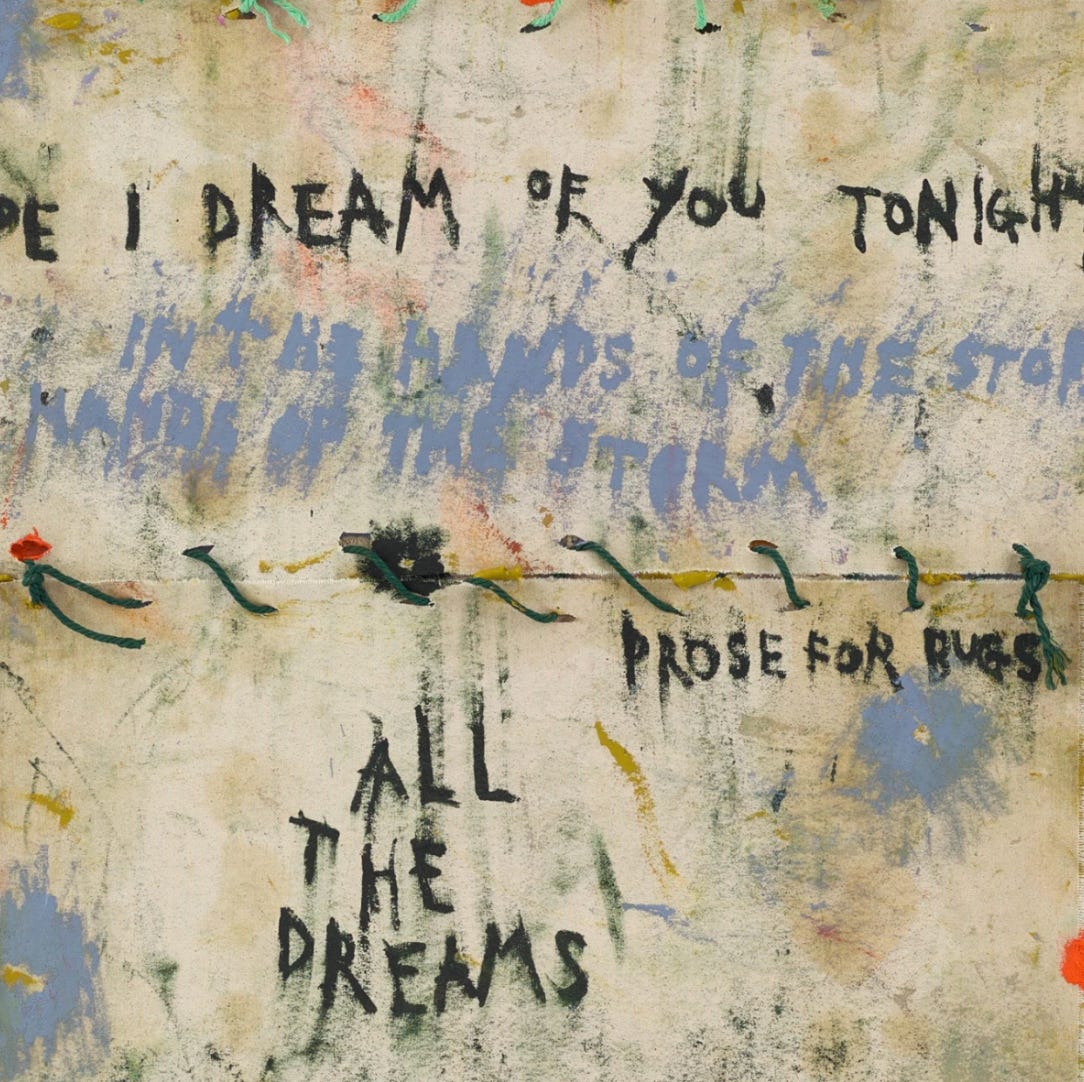 PE I DREAM OF YOU TONIGH
IN THE HANDS OF THE STOR
HANDS OF THE STORM
PROSE FOR BUGS
ALL
THE
DREAMS